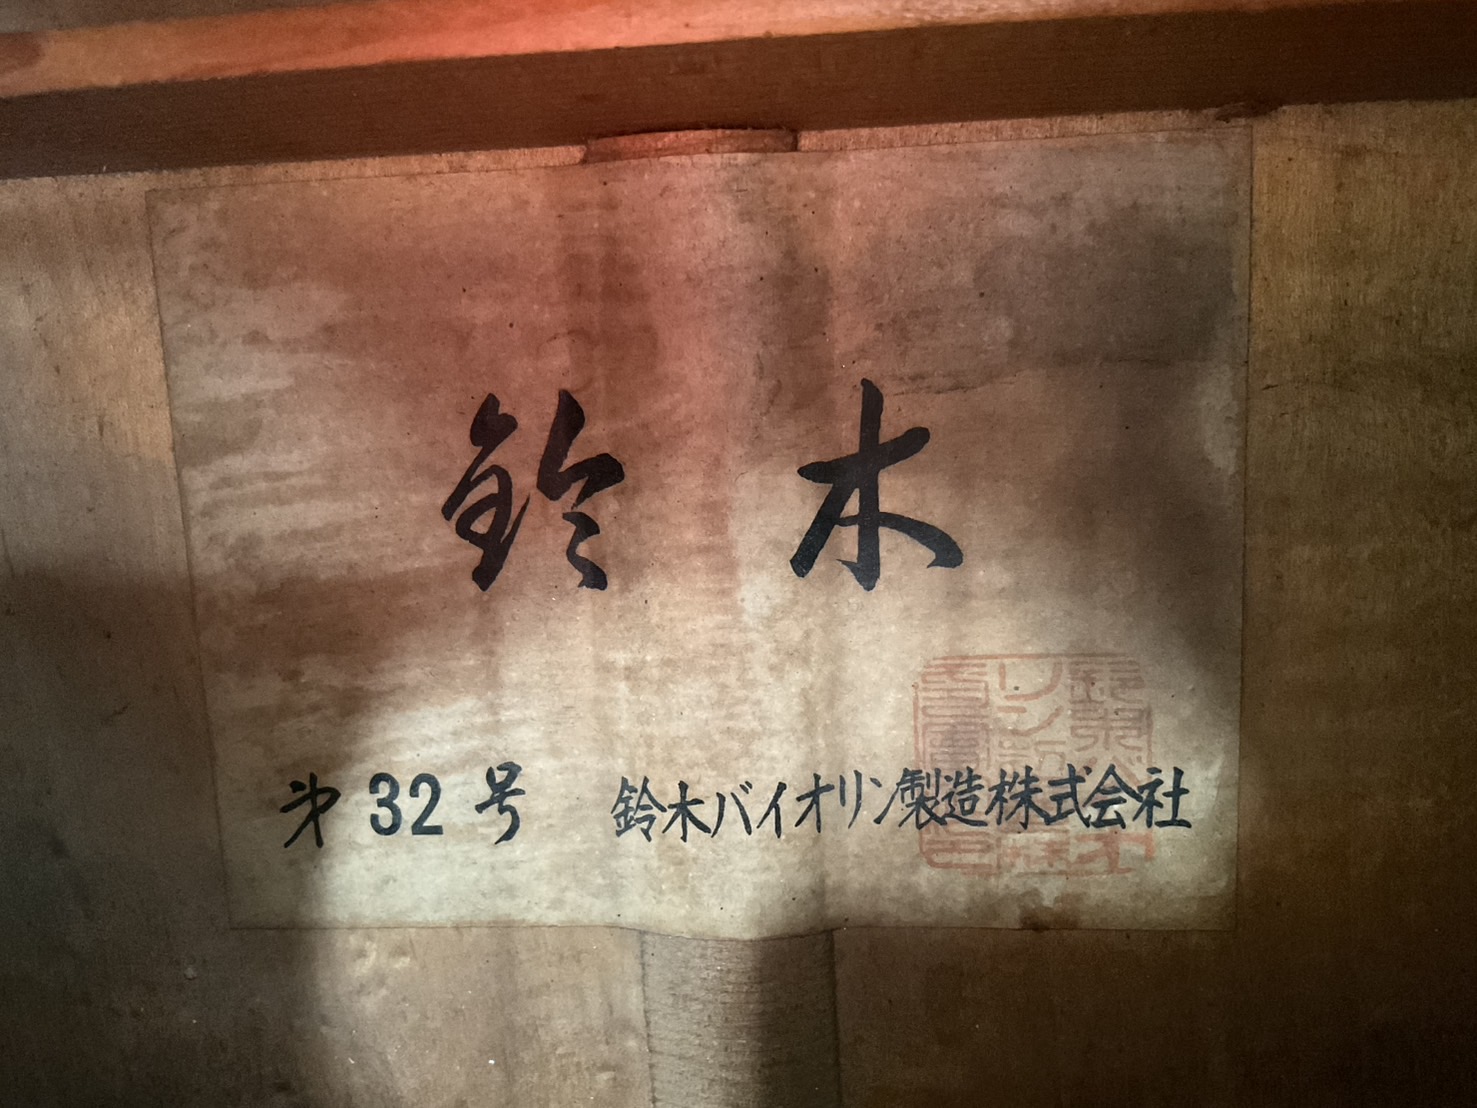 鈴木
㐧32号 鈴木バイオリン製造株式会社